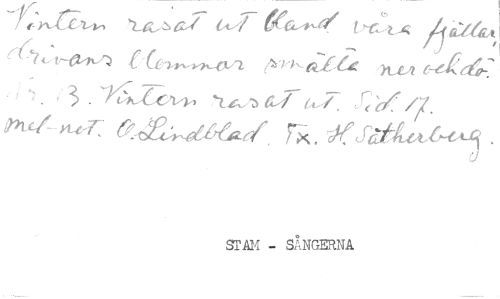 Vintern rasat ut bland våra fjällar,
drivans blommor smälta ner och dö.
Nr. 13. Vintern rasat ut. Sid. 17.
mel-not. O. Lindblad. Tx. H. Sätherberg.
STAM - SÅNGERNA